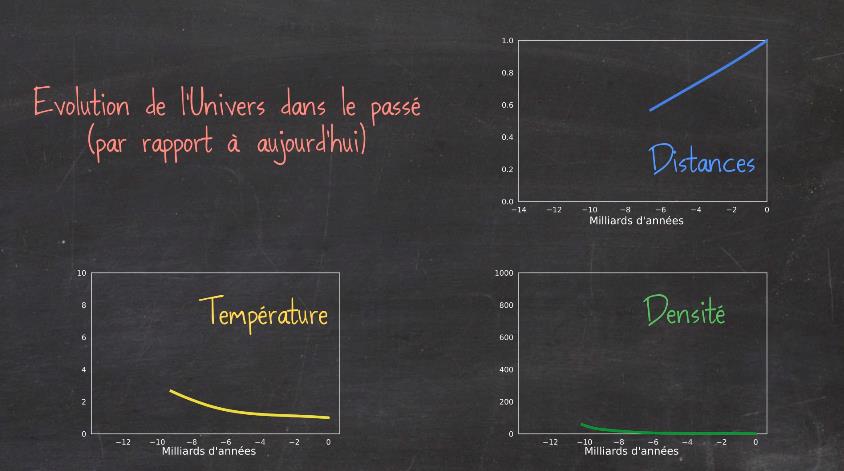 Evolution de l'Univers dans le passé
(par rapport à aujourd'hui)
1.0
0.8
0.6
0.4
0.2
0.0
Distances
−14 −12 −10 −8 −6 −4 −2 0
Milliards d'années
10
8
6
4
2
0
Température
−12 −10 −8 −6 −4 −2 0
Milliards d'années
1000
800
600
400
200
0
Densité
−12 −10 −8 −6 −4 −2 0
Milliards d'années